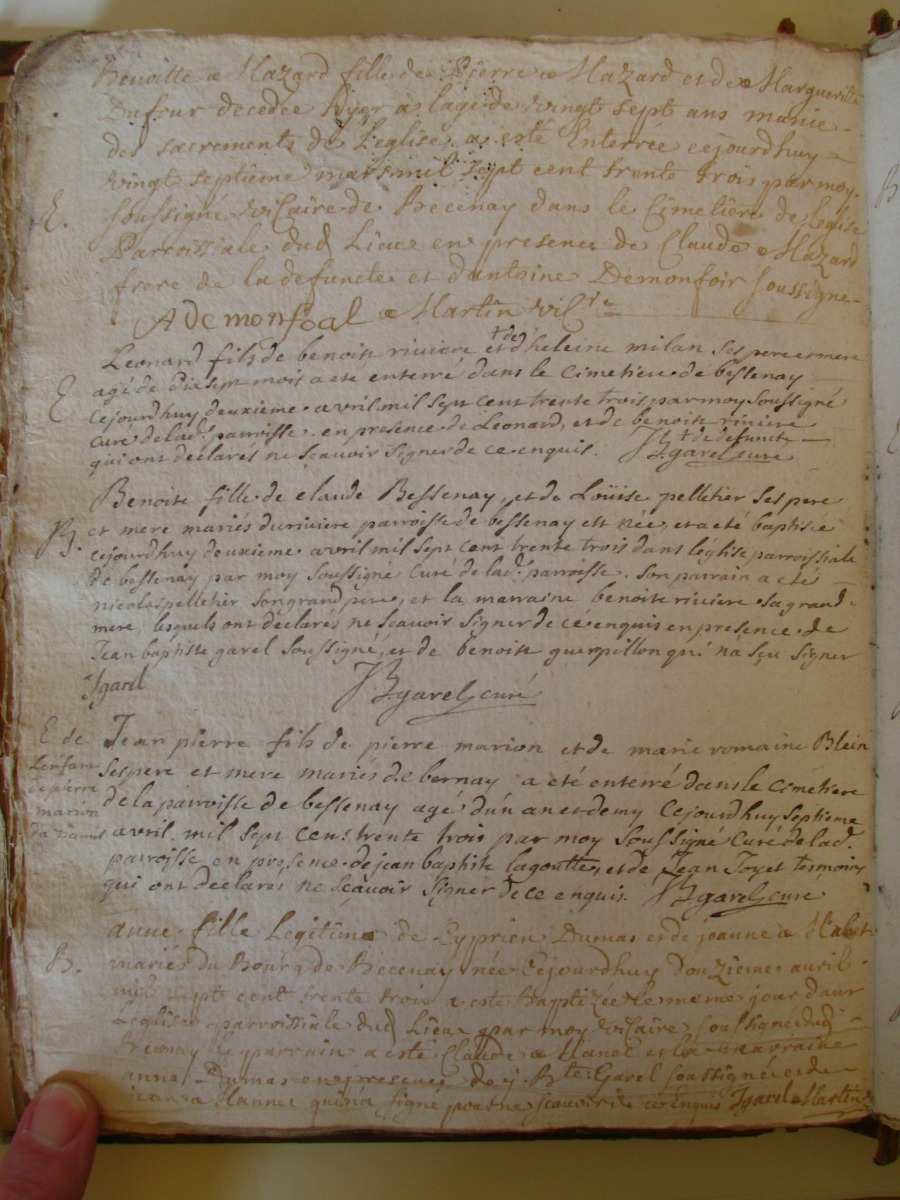 Benoitte Mazard fille de Pierre Mazard et de Margueritte
Dufour decedée hyer a lage de vingt sept ans munie
des sacrements de Leglise, a esté Enterrée cejourdhuy
vingt septieme mars mil sept cent trente trois par moy
E. soussigné vicaire de Becenay dans le Cimetiere de leglise
Parroissiale dud Lieu en presence de Claude Mazard
frere de la defuncte et dantoine Demonfoir soussigne
A demonfoal Martin vic.re
Leonard fils de benoist riviere et d'heleine milan ses pere et mere
E agé de dix sept mois a eté enterré dans le Cimetiere de bessenay
cejourdhuy deuxieme avril mil sept cent trente trois par moy soussigné
curé de lad. parroisse en presence de Leonard, et de benoist riviere
qui ont declarés ne scavoir signer de ce enquis. JB garel curé
Benoite fille de claude Bessenay, et de Loüise pelletier ses pere
B. et mere mariés du riviere parroisse de bessenay est née, et a eté baptisée
cejourdhuy deuxieme avril mil sept cent trente trois dans léglise parroissiale
de bessenay par moy soussigné curé de lad. parroisse. Son parrain a eté
nicolas pelletier son grand pere, et la marraine benoite riviere sa grand
mere, lesquels ont déclarés ne scavoir signer de ce enquis en presence de
Jean baptiste garel soussigné, et de benoist guerpillon qui na sçu signer
Jgarel JB garel curé
E de Jean pierre fils de pierre marion et de marie romaine Blein
Lenfant ses pere et mere mariés de bernay a eté enterré dans le Cimetiere
de pierre de la parroisse de bessenay agé d'un an et demy Cejourdhuy septieme
marion avril mil sept cens trente trois par moy soussigné Curé de lad.
parroisse en presence de jean baptiste lagoutte, et de Jean Joyet tesmoins
qui ont declares ne scavoir signer de ce enquis. JB garel curé
anne fille Legitime de Cyprien Dumas et de joanne
B. mariés du Bourg de Becenay née Cejourdhuy douzieme auril
mil sept cent trente trois a esté baptizée le meme jour dans
Leglise parroissiale dud Lieu par moy vicaire soussigné dud
Becenay le parrain a esté Claude et la marraine
anne Dumas en presence de j. Bte Garel soussigné et de
jean qui na signe pour ne scauoir de ce enquis Jgarel Martin